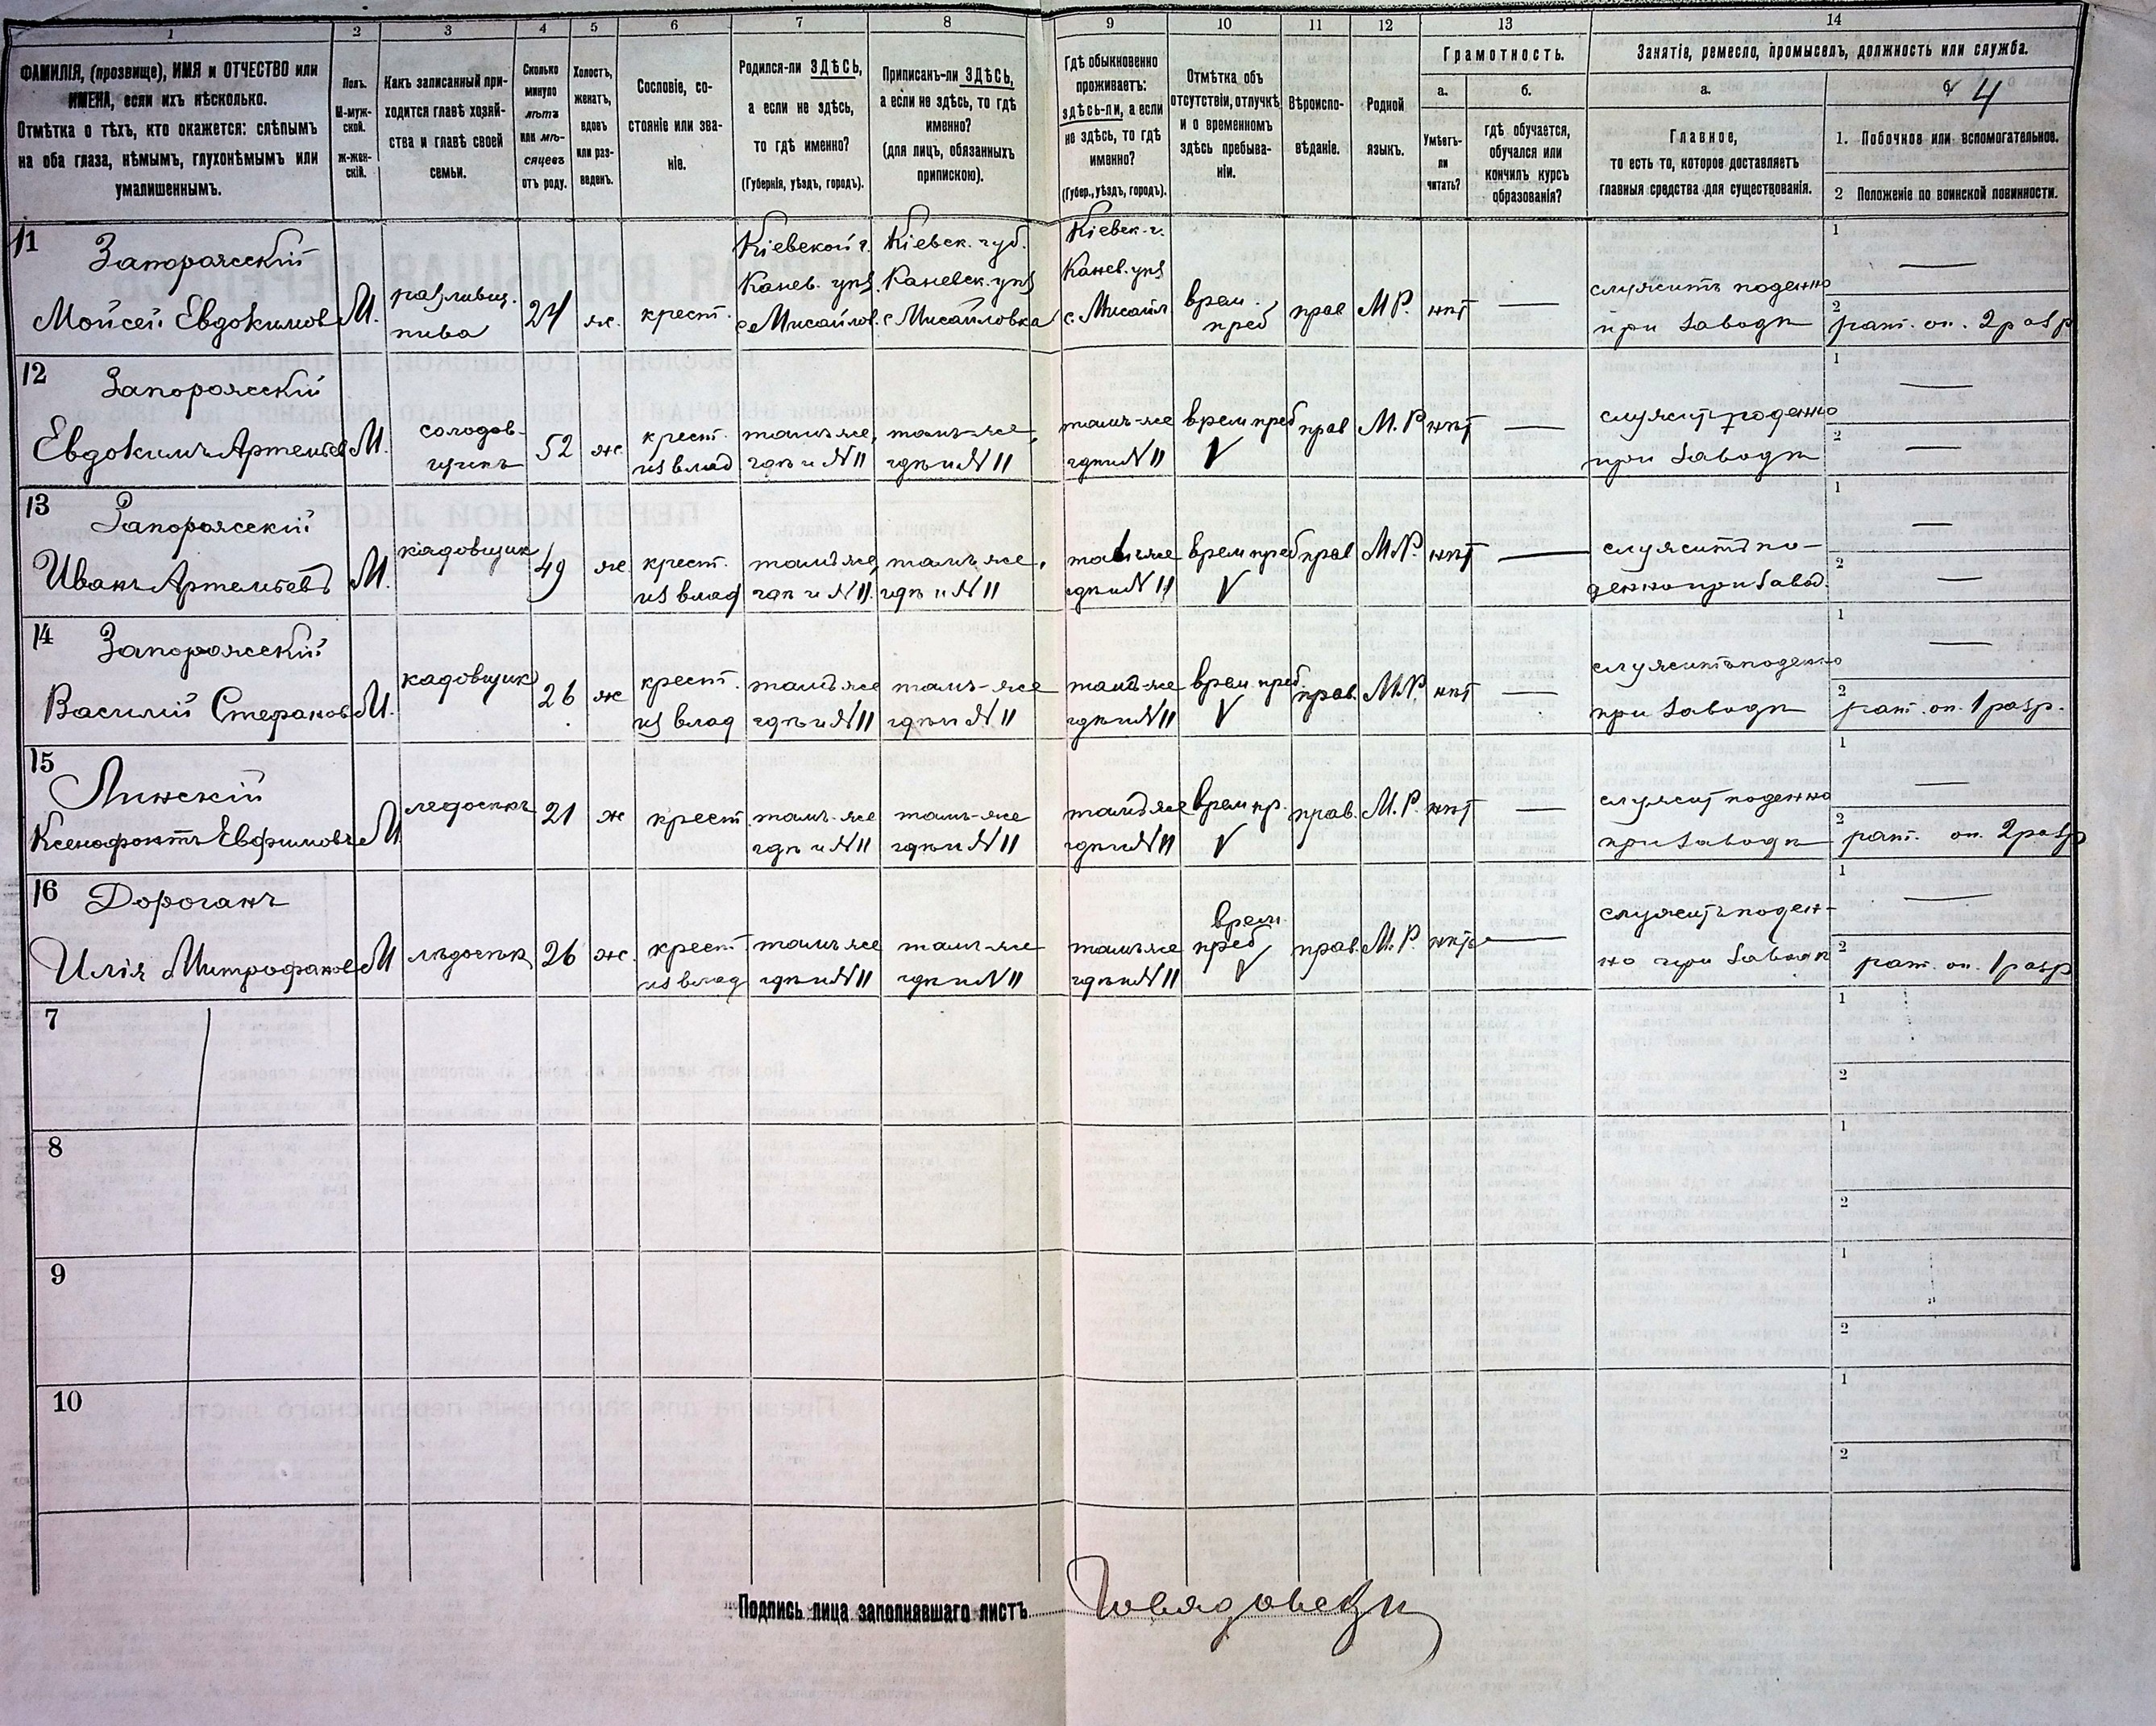 1 2 3 4 5 6 7 8 9 10 11 12 13 14
ФАМИЛІЯ, (прозвище), ИМЯ и ОТЧЕСТВО или
ИМЕНА, если ихъ нѣсколько.
Отмѣтка о тѣхъ, кто окажется: слѣпымъ
на оба глаза, нѣмымъ, глухонѣмымъ или
умалишеннымъ.
Полъ.
М-муж-
ской.
ж-жен-
скій.
Какъ записанный при-
ходится главѣ хозяй-
ства и главѣ своей
семьи.
Сколько
минуло
лѣтъ
или мѣ-
сяцевъ
отъ роду.
Холостъ,
женатъ,
вдовъ
или раз-
веденъ.
Сословіе, со-
стояніе или зва-
ніе.
Родился-ли ЗДѢСЬ,
а если не здѣсь,
то гдѣ именно?
(Губернія, уѣздъ, городъ).
Приписанъ-ли ЗДѢСЬ,
а если не здѣсь, то гдѣ
именно?
(для лицъ, обязанныхъ
припискою).
Гдѣ обыкновенно
проживаетъ:
здѣсь-ли, а если
не здѣсь, то гдѣ
именно?
(Губер., уѣздъ, городъ).
Отмѣтка объ
отсутствіи, отлучкѣ
и о временномъ
здѣсь пребыва-
ніи.
Вѣроиспо-
вѣданіе.
Родной
языкъ.
Грамотность.
а.
Умѣетъ-
ли
читать?
б.
гдѣ обучается,
обучался или
кончилъ курсъ
образованія?
Занятіе, ремесло, промыселъ, должность или служба.
а.
Главное,
то есть то, которое доставляетъ
главныя средства для существованія.
б. 4
1. Побочное или вспомогательное.
2 Положеніе по воинской повинности.
11
Запорожскій
Мойсей Евдокимов
М.
разливщ.
пива
24
ж.
крест.
Кіевской г.
Канев. уѣз.
с. Мисайлов.
Кіевск. губ.
Каневск. уѣз
с Мисайловка
Кіевск. г.
Канев. уѣз
с. Мисайл
врем.
преб
прав
М Р.
нѣт
—
служитъ поденно
при заводѣ
1
—
2
рат. оп. 2 разр
12
Запорожскій
Евдокимъ Артемьев
М.
солодов-
щикъ
52
ж
крест.
из влад
тамъ же,
гдѣ и N 11
тамъ-же,
гдѣ и N 11
тамъ-же
гдѣ и N 11
врем преб
V
прав
М. Р
нѣт
—
служитъ поденно
при заводѣ
1
—
2
—
13
Запорожскій
Иванъ Артемьевъ
М.
кадовщик
49
ж
крест.
из влад
тамъ же,
гдѣ и N 11.
тамъ же,
гдѣ и N 11
тамъ же
гдѣ и N 11
врем преб
V
прав
М.Р.
нѣт
—
служитъ по-
денно при завод.
1
—
2
—
14
Запорожскій
Василій Стефанов
М.
кадовщик
26
ж
крест.
из влад
тамъ же
гдѣ и N 11
тамъ-же
гдѣ и N 11
тамъ-же
гдѣ и N 11
врем. преб.
V
прав.
М.Р.
нѣт
—
служитъ поденно
при заводѣ
1
—
2
рат. оп. 1 разр.
15
Ксенофонтъ Евфимовъ
М
21
ж
крест.
тамъ-же
гдѣ и N 11
тамъ-же
гдѣ и N 11
тамъ же
гдѣ и N 11
врем пр.
V
прав.
М. Р.
нѣт
—
служит поденно
при заводѣ
1
—
2
рат. оп. 2 разр
16
Дороганъ
Илія Митрофанов
М
26
ж.
крест
из влад
тамъ же
гдѣ и N 11
тамъ-же
гдѣ и N 11
тамъ же
гдѣ и N 11
врем.
преб
V
прав.
М. Р.
нѣтъ
—
служитъ поден-
но при заводѣ
1
—
2
рат. оп. 1 разр
7
1
2
8
1
2
9
1
2
10
1
2
Подпись лица заполнявшаго листъ